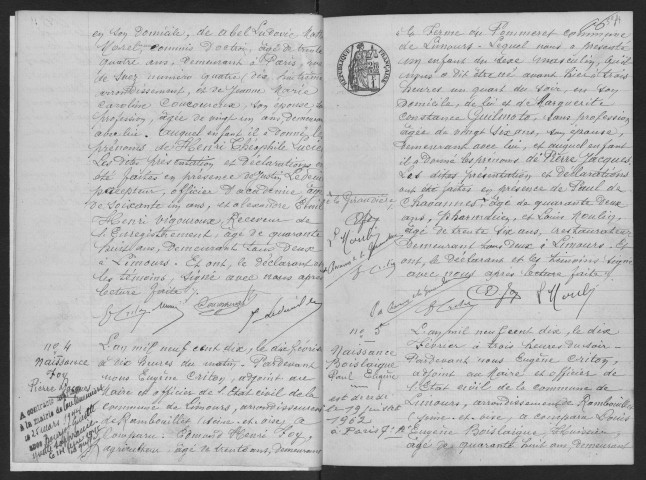 en son domicile, de Abel Ludovic
Morel, commis d'octroi, âgé de trente
quatre ans, demeurant à Paris, rue
de Suez numéro quatre, dix huitième
arrondissement, et de Jeanne Marie
Caroline son épouse,
profession, âgée de vingt un ans, demeurant
avec lui. Auquel enfant il a donné les
prénoms de Henri Théophile Lucien
Les dites présentation et déclarations ont
été faites en présence de Justin
percepteur, officier d'académie, âgé
de soixante un ans, et Alexandre
Henri Vigouroux, Receveur de
l'Enregistrement, âgé de quarante
huit ans, demeurant tous deux
à Limours. Et ont, le déclarant et
les témoins, signé avec nous après
lecture faite.
No 4
Naissance
Foy
Pierre Jacques
A contracté mariage
à la mairie de
le 21 mars 1944
L'an mil neuf cent dix, le dix février
à dix heures du matin. Pardevant
nous Eugène Criton, adjoint au
Maire et officier de l'Etat civil de la
commune de Limours, arrondissement
de Rambouillet (Seine-et-Oise), a
comparu Edmond Henri Foy,
agriculteur, âgé de trente ans, demeurant
RÉPUBLIQUE FRANÇAISE
à la ferme du Pommeret commune
de Limours. Lequel nous a présenté
un enfant du sexe masculin, qu'il
nous a dit être né avant hier à trois
heures un quart du soir, en son
domicile, de lui et de Marguerite
Constance Guilmoto, sans profession
âgée de vingt six ans, son épouse,
demeurant avec lui, et auquel enfant
il a donné les prénoms de Pierre Jacques.
Les dites présentation et déclarations
ont été faites en présence de Paul de
Chavannes, âgé de quarante deux
ans, pharmacien, et Louis Moulin,
âgé de trente six ans, restaurateur
demeurant tous deux à Limours. Et
ont, le déclarant et les témoins signé
avec nous après lecture faite.
No 5
Naissance
Boislaigue
Paul Eugène
est décédé
le 19 juillet
1962
à Paris
L'an mil neuf cent dix, le dix
Février à trois heures du soir.
Pardevant nous Eugène Criton,
adjoint au Maire et officier de
l'Etat civil de la commune de
Limours, arrondissement de Rambouillet
(Seine-et-Oise) a comparu Louis
Eugène Boislaigue, huissier
âgé de quarante huit ans, demeurant